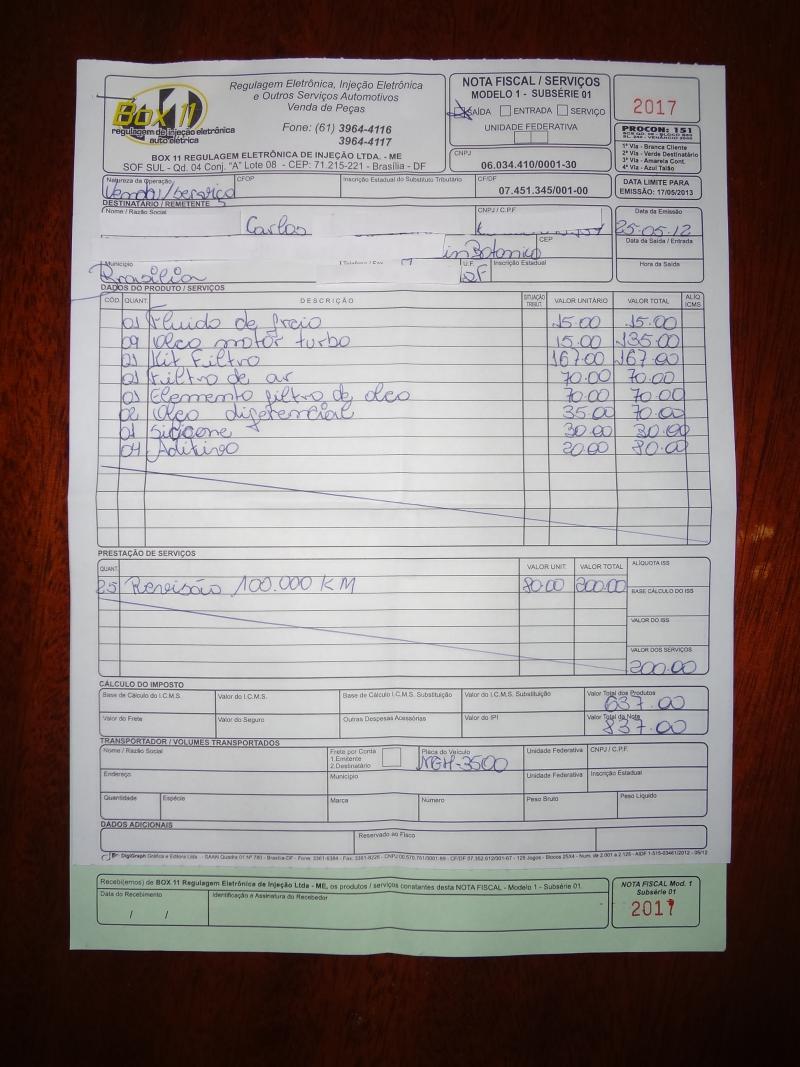 Box 11
regulagem de injeção eletrônica
auto elétrica
Regulagem Eletrônica, Injeção Eletrônica
e Outros Serviços Automotivos
Venda de Peças
Fone: (61) 3964-4116
3964-4117
BOX 11 REGULAGEM ELETRÔNICA DE INJEÇÃO LTDA. - ME
SOF SUL - Qd. 04 Conj. "A" Lote 08 - CEP: 71.215-221 - Brasília - DF
NOTA FISCAL / SERVIÇOS
MODELO 1 - SUBSÉRIE 01
SAÍDA ENTRADA SERVIÇO
UNIDADE FEDERATIVA
CNPJ
06.034.410/0001-30
2017
PROCON: 151
1ª Via - Branca Cliente
2ª Via - Verde Destinatário
3ª Via - Amarela Cont.
4ª Via - Azul Talão
Natureza da Operação CFOP Inscrição Estadual do Substituto Tributário CF/DF
07.451.345/001-00
DATA LIMITE PARA
EMISSÃO: 17/05/2013
DESTINATÁRIO / REMETENTE
Nome / Razão Social CNPJ / C.P.F. Data da Emissão
Carlos 25.05.12
CEP Data da Saída / Entrada
im Botanico
Município U.F. Inscrição Estadual Hora da Saída
Brasilia DF
DADOS DO PRODUTO / SERVIÇOS
CÓD. QUANT. DESCRIÇÃO SITUAÇÃO TRIBUT. VALOR UNITÁRIO VALOR TOTAL ALÍQ ICMS
01 Fluido de freio 15.00 15.00
09 Oleo motor turbo 15.00 135.00
01 Kit Filtro 167.00 167.00
01 Filtro de ar 70.00 70.00
01 Elemento filtro de oleo 70.00 70.00
02 Oleo diferencial 35.00 70.00
01 Silicone 30.00 30.00
04 Aditivo 20.00 80.00
PRESTAÇÃO DE SERVIÇOS
QUANT. VALOR UNIT. VALOR TOTAL ALÍQUOTA ISS
2.5 Revisão 100.000 KM 80.00 200.00
BASE CÁLCULO DO ISS
VALOR DO ISS
VALOR DOS SERVIÇOS
200.00
CÁLCULO DO IMPOSTO
Base de Cálculo do I.C.M.S. Valor do I.C.M.S. Base de Cálculo I.C.M.S. Substituição Valor do I.C.M.S. Substituição Valor Total dos Produtos
637.00
Valor do Frete Valor do Seguro Outras Despesas Acessórias Valor do IPI Valor Total da Nota
837.00
TRANSPORTADOR / VOLUMES TRANSPORTADOS
Nome / Razão Social Frete por Conta Placa do Veículo Unidade Federativa CNPJ / C.P.F.
1.Emitente
2.Destinatário
Endereço Município Unidade Federativa Inscrição Estadual
Quantidade Espécie Marca Número Peso Bruto Peso Líquido
DADOS ADICIONAIS
Reservado ao Fisco
DigiGraph Gráfica e Editora Ltda
Recebi(emos) de BOX 11 Regulagem Eletrônica de Injeção Ltda - ME, os produtos / serviços constantes desta NOTA FISCAL - Modelo 1 - Subsérie 01.
Data do Recebimento Identificação e Assinatura do Recebedor
/ /
NOTA FISCAL Mod. 1
Subsérie 01
2017